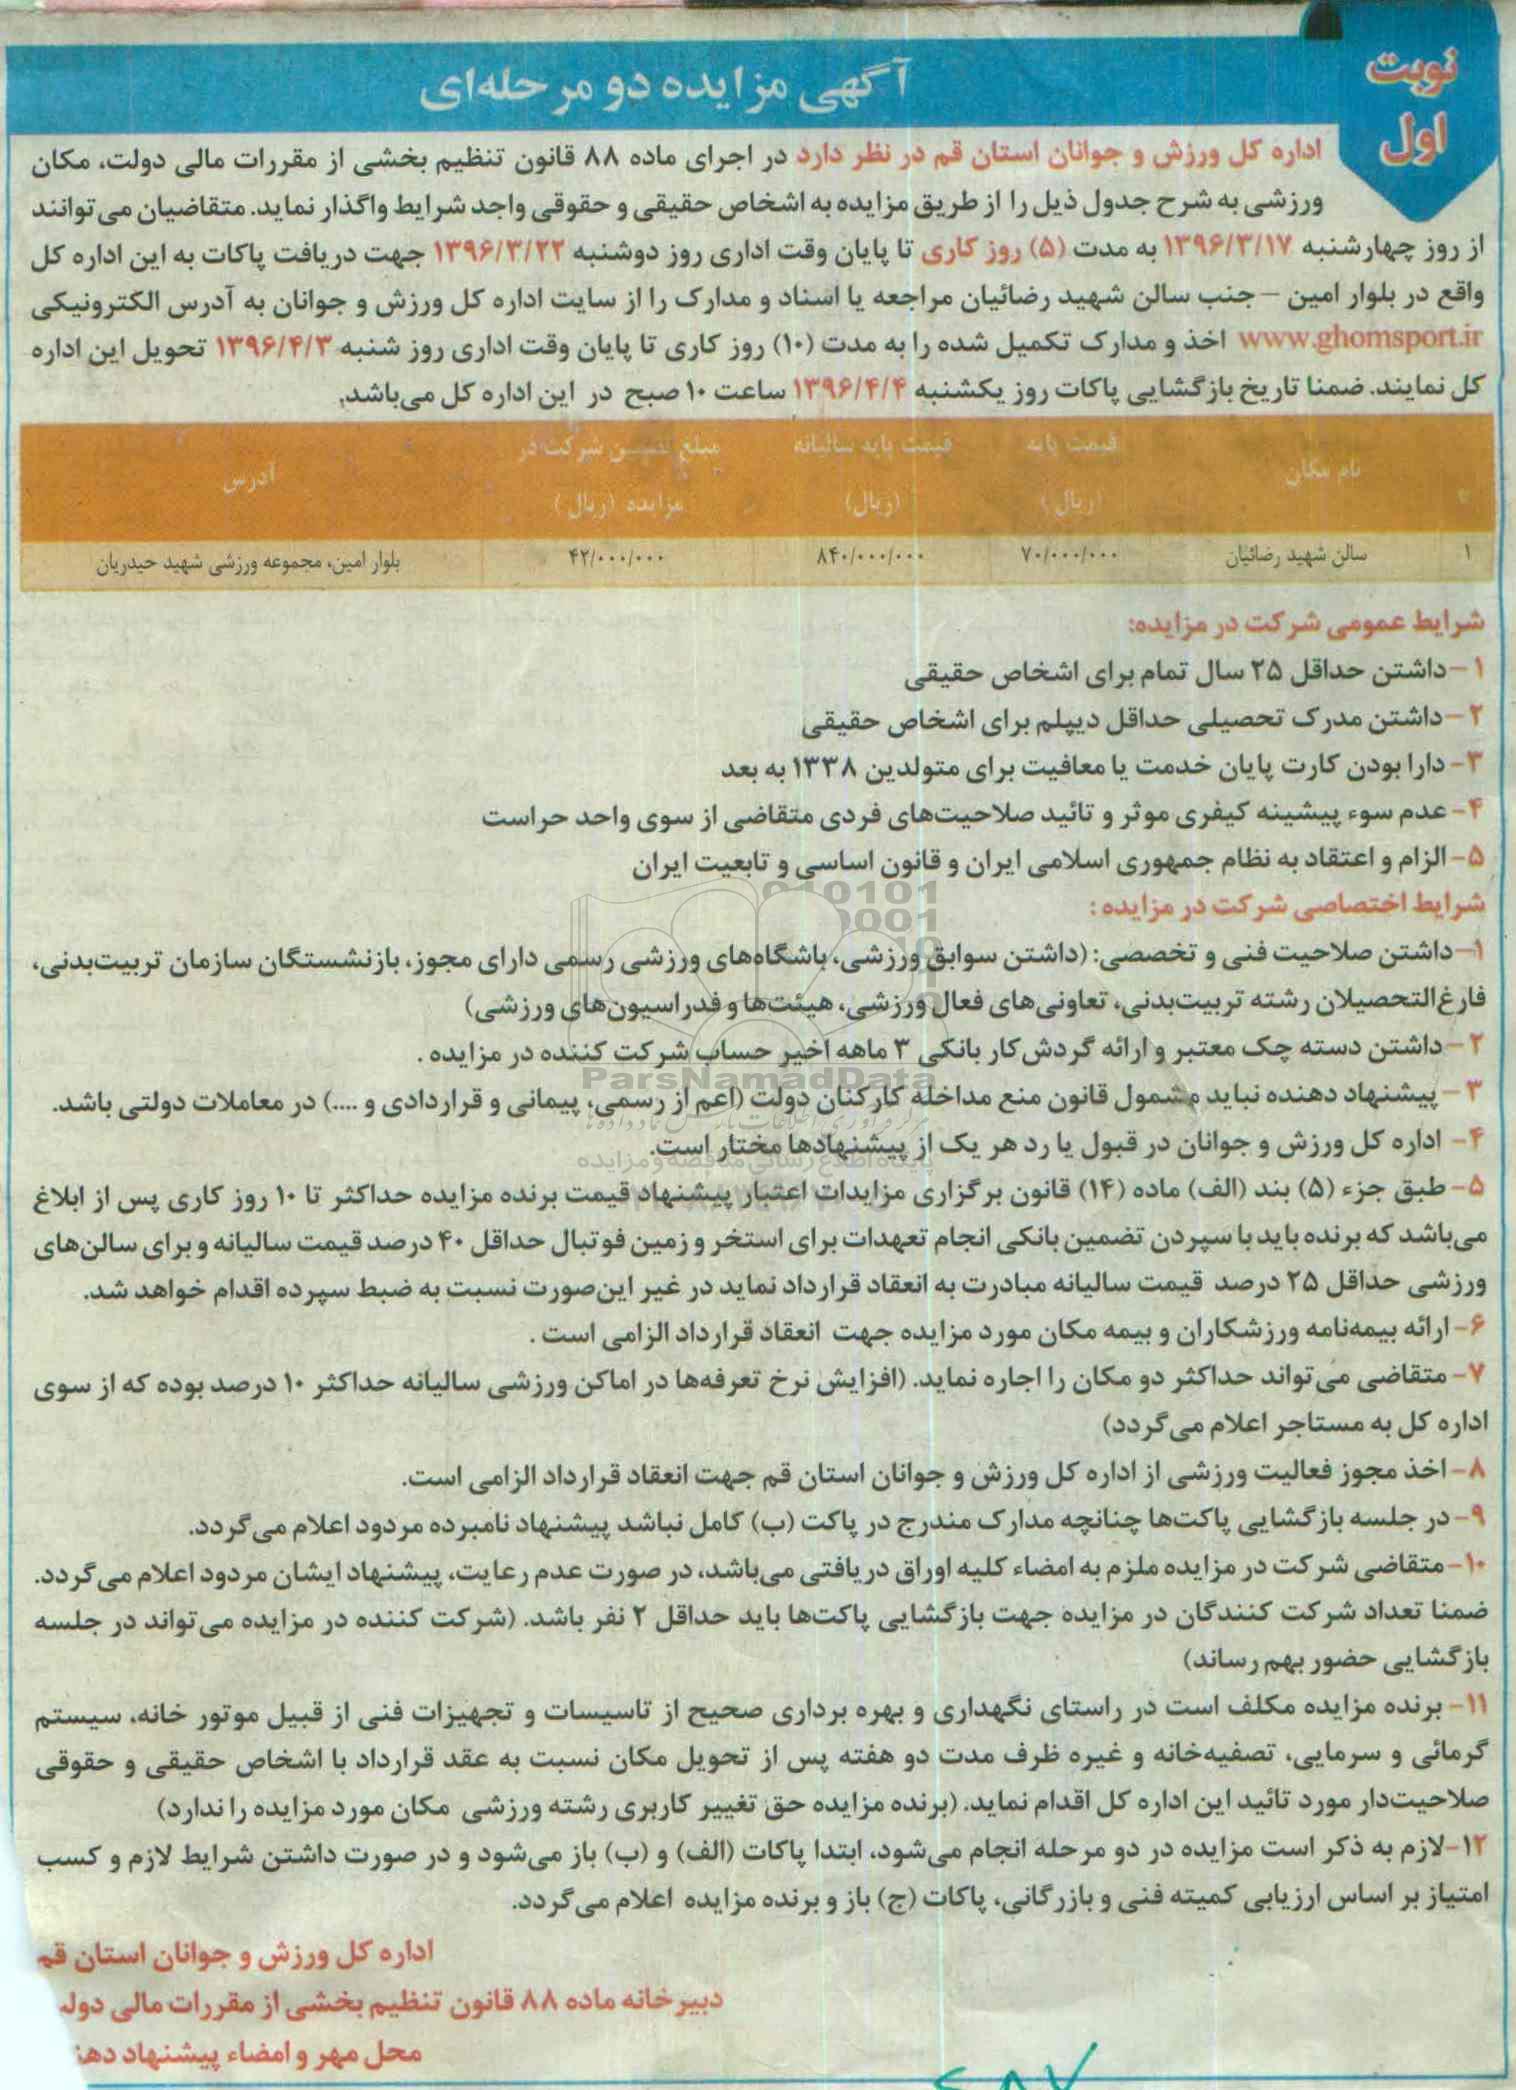 نوبت
اول
آگهی مزایده دو مرحله‌ای
اداره کل ورزش و جوانان استان قم در نظر دارد در اجرای ماده ۸۸ قانون تنظیم بخشی از مقررات مالی دولت، مکان
ورزشی به شرح جدول ذیل را از طریق مزایده به اشخاص حقیقی و حقوقی واجد شرایط واگذار نماید. متقاضیان می‌توانند
از روز چهارشنبه ۱۳۹۶/۳/۱۷ به مدت (۵) روز کاری تا پایان وقت اداری روز دوشنبه ۱۳۹۶/۳/۲۲ جهت دریافت پاکات به این اداره کل
واقع در بلوار امین – جنب سالن شهید رضائیان مراجعه یا اسناد و مدارک را از سایت اداره کل ورزش و جوانان به آدرس الکترونیکی
www.ghomsport.ir اخذ و مدارک تکمیل شده را به مدت (۱۰) روز کاری تا پایان وقت اداری روز شنبه ۱۳۹۶/۴/۳ تحویل این اداره
کل نمایند. ضمنا تاریخ بازگشایی پاکات روز یکشنبه ۱۳۹۶/۴/۴ ساعت ۱۰ صبح در این اداره کل می‌باشد.
نام مکان قیمت پایه (ریال) قیمت پایه سالیانه (ریال) مبلغ تضمین شرکت در مزایده (ریال) آدرس
۱ سالن شهید رضائیان ۷۰/۰۰۰/۰۰۰ ۸۴۰/۰۰۰/۰۰۰ ۴۲/۰۰۰/۰۰۰ بلوار امین، مجموعه ورزشی شهید حیدریان
شرایط عمومی شرکت در مزایده:
۱- داشتن حداقل ۲۵ سال تمام برای اشخاص حقیقی
۲- داشتن مدرک تحصیلی حداقل دیپلم برای اشخاص حقیقی
۳- دارا بودن کارت پایان خدمت یا معافیت برای متولدین ۱۳۳۸ به بعد
۴- عدم سوء پیشینه کیفری موثر و تائید صلاحیت‌های فردی متقاضی از سوی واحد حراست
۵- الزام و اعتقاد به نظام جمهوری اسلامی ایران و قانون اساسی و تابعیت ایران
شرایط اختصاصی شرکت در مزایده :
۱- داشتن صلاحیت فنی و تخصصی: (داشتن سوابق ورزشی، باشگاه‌های ورزشی رسمی دارای مجوز، بازنشستگان سازمان تربیت‌بدنی،
فارغ‌التحصیلان رشته تربیت‌بدنی، تعاونی‌های فعال ورزشی، هیئت‌ها و فدراسیون‌های ورزشی)
۲- داشتن دسته چک معتبر و ارائه گردش کار بانکی ۳ ماهه اخیر حساب شرکت کننده در مزایده .
۳- پیشنهاد دهنده نباید مشمول قانون منع مداخله کارکنان دولت (اعم از رسمی، پیمانی و قراردادی و ....) در معاملات دولتی باشد.
۴- اداره کل ورزش و جوانان در قبول یا رد هر یک از پیشنهادها مختار است.
۵- طبق جزء (۵) بند (الف) ماده (۱۴) قانون برگزاری مزایدات اعتبار پیشنهاد قیمت برنده مزایده حداکثر تا ۱۰ روز کاری پس از ابلاغ
می‌باشد که برنده باید با سپردن تضمین بانکی انجام تعهدات برای استخر و زمین فوتبال حداقل ۴۰ درصد قیمت سالیانه و برای سالن‌های
ورزشی حداقل ۲۵ درصد قیمت سالیانه مبادرت به انعقاد قرارداد نماید در غیر این‌صورت نسبت به ضبط سپرده اقدام خواهد شد.
۶- ارائه بیمه‌نامه ورزشکاران و بیمه مکان مورد مزایده جهت انعقاد قرارداد الزامی است .
۷- متقاضی می‌تواند حداکثر دو مکان را اجاره نماید. (افزایش نرخ تعرفه‌ها در اماکن ورزشی سالیانه حداکثر ۱۰ درصد بوده که از سوی
اداره کل به مستاجر اعلام می‌گردد)
۸- اخذ مجوز فعالیت ورزشی از اداره کل ورزش و جوانان استان قم جهت انعقاد قرارداد الزامی است.
۹- در جلسه بازگشایی پاکت‌ها چنانچه مدارک مندرج در پاکت (ب) کامل نباشد پیشنهاد نامبرده مردود اعلام می‌گردد.
۱۰- متقاضی شرکت در مزایده ملزم به امضاء کلیه اوراق دریافتی می‌باشد، در صورت عدم رعایت، پیشنهاد ایشان مردود اعلام می‌گردد.
ضمنا تعداد شرکت کنندگان در مزایده جهت بازگشایی پاکت‌ها باید حداقل ۲ نفر باشد. (شرکت کننده در مزایده می‌تواند در جلسه
بازگشایی حضور بهم رساند)
۱۱- برنده مزایده مکلف است در راستای نگهداری و بهره برداری صحیح از تاسیسات و تجهیزات فنی از قبیل موتور خانه، سیستم
گرمائی و سرمایی، تصفیه‌خانه و غیره ظرف مدت دو هفته پس از تحویل مکان نسبت به عقد قرارداد با اشخاص حقیقی و حقوقی
صلاحیت‌دار مورد تائید این اداره کل اقدام نماید. (برنده مزایده حق تغییر کاربری رشته ورزشی مکان مورد مزایده را ندارد)
۱۲- لازم به ذکر است مزایده در دو مرحله انجام می‌شود، ابتدا پاکات (الف) و (ب) باز می‌شود و در صورت داشتن شرایط لازم و کسب
امتیاز بر اساس ارزیابی کمیته فنی و بازرگانی، پاکات (ج) باز و برنده مزایده اعلام می‌گردد.
اداره کل ورزش و جوانان استان قم
دبیرخانه ماده ۸۸ قانون تنظیم بخشی از مقررات مالی دول
محل مهر و امضاء پیشنهاد ده
ParsNamadData
پایگاه اطلاع رسانی مناقصه و مزایده